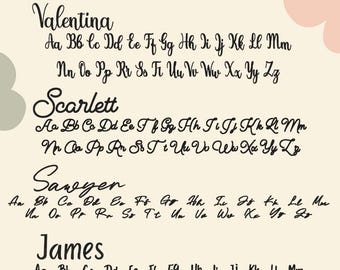 Valentina
Aa Bb Cc Dd Ee Ff Gg Hh Ii Jj Kk Ll Mm
Nn Oo Pp Rr Ss Tt Uu Vv Ww Xx Yy Zz
Scarlett
Aa Bb Cc Dd Ee Ff Gg Hh Ii Jj Kk Ll Mm
Nn Oo Pp Rr Ss Tt Uu Vv Ww Xx Yy Zz
Sawyer
Aa Bb Cc Dd Ee Ff Gg Hh Ii Jj Kk Ll Mm
Nn Oo Pp Rr Ss Tt Uu Vv Ww Xx Yy Zz
James
Aa Bb Cc Dd Ee Ff Gg Hh Ii Jj Kk Ll Mm